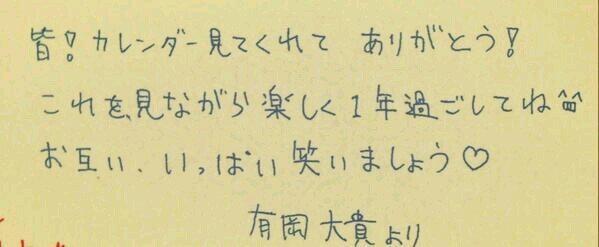 皆!カレンダー見てくれて ありがとう!
これを見ながら楽しく1年過ごしてね^^
お互い、いっぱい笑いましょう♡
有岡大貴より